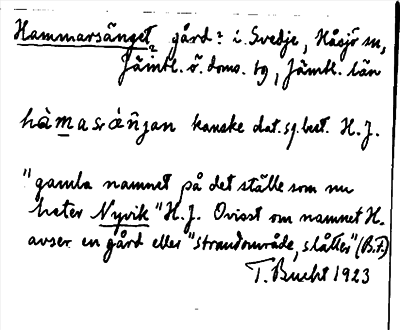 Hammarsänget gård? i Svedje, Håsjö sn,
Jämtl. ö. doms. tg, Jämtl. län
hàmasráñjan kanske dat. sg. best. H. J.
"gamla namnet på det ställe som nu
heter Nyvik" H. J. Ovisst om namnet H.
avser en gård eller "strandområde, slåtter" (B.F.)
T. Bucht 1923